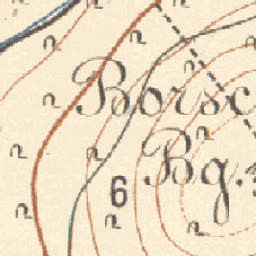 Borsc
Bg.
6